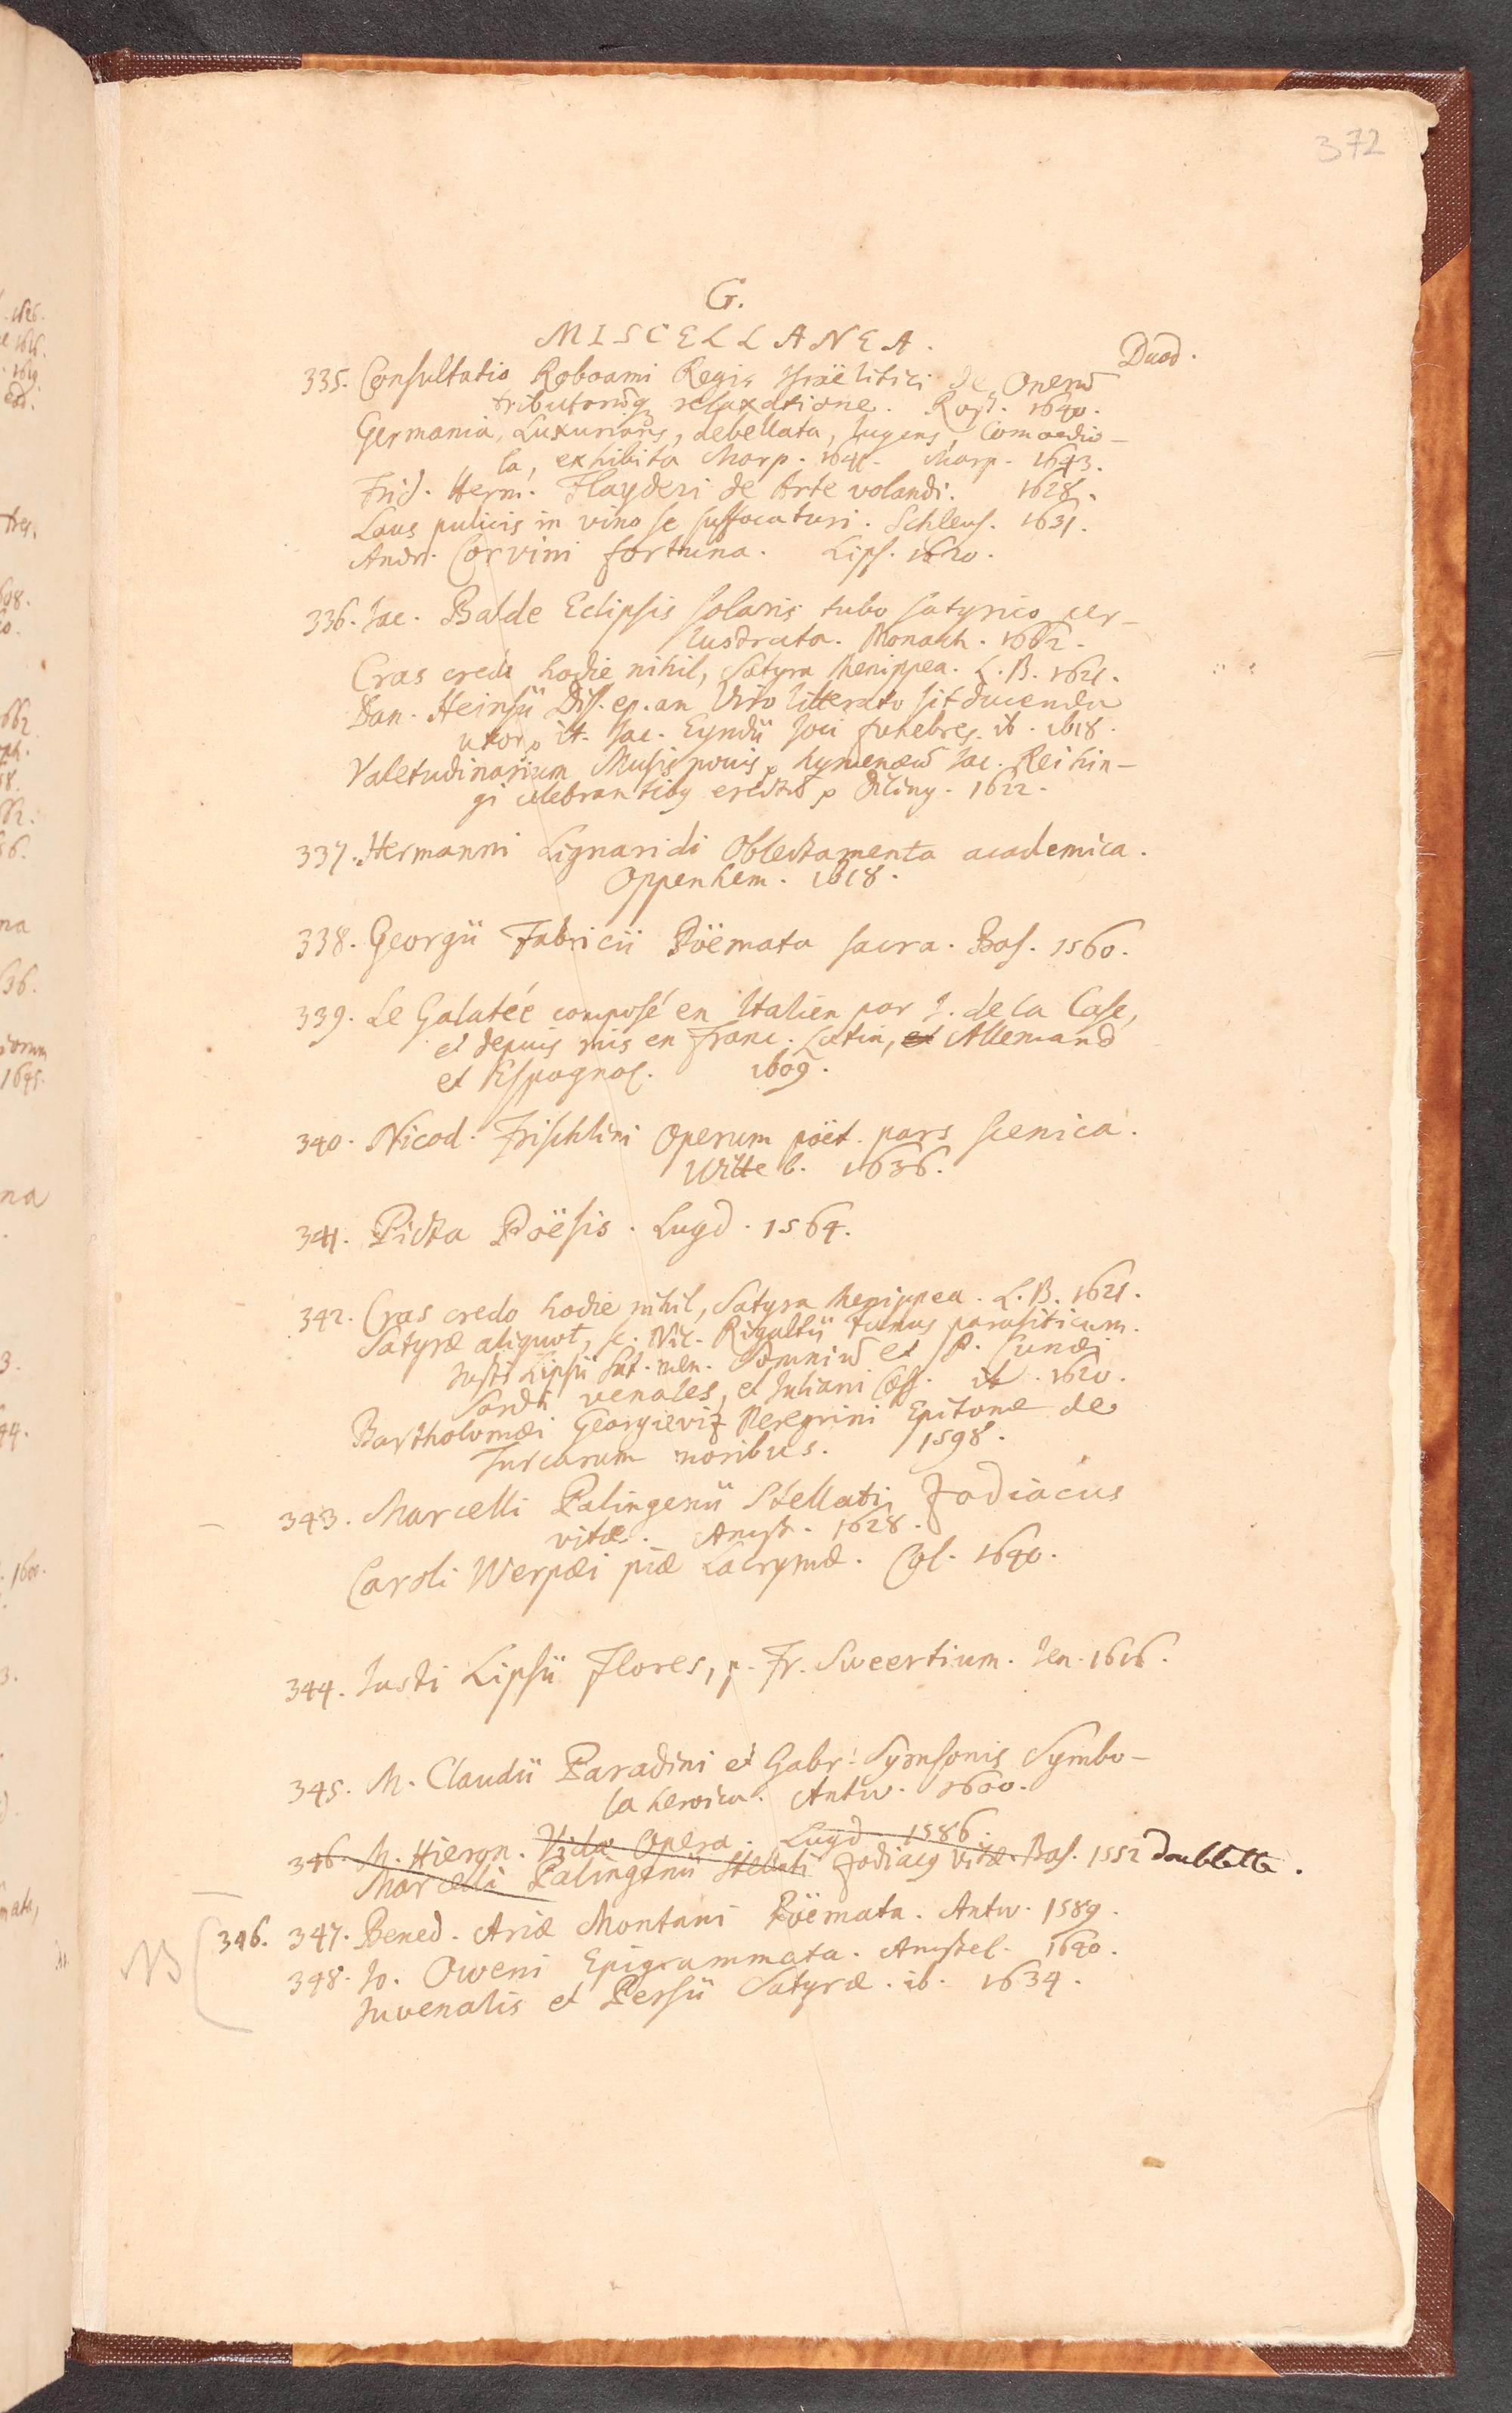 372
G.
MISCELLANEA.
Duod.
335. Consultatio Roboami Regis Israëlitici de Operū
tributorūq; relaxatione. Rost. 1640.
Germania Luxurians, debellata, lugens, Comoedio-
la, exhibita Marp. 1641. Marp. 1643.
Frid. Herm. Flayderi de Arte volandi. 1628.
Laus pulicis in vino se suffocaturi. Schleus. 1631.
Andr. Corvini fortuna. Lips. 1620.
336. Jac. Balde Eclipsis solaris tubo satyrico per-
lustrata. Monach. 1662.
Cras credo hodie nihil, Satyra Menippea. L. B. 1621.
Dan. Heinsii Diss. ep. an Viro litterato sit ducenda
uxor, it. Jac. Eyndii Joci funebres. ib. 1618.
Valetudinarium Musis novis, hymenæū Jac. Reihin-
gi celebrantibq erectū, Diling. 1622.
337. Hermanni Lignaridi Oblectamenta academica.
Oppenhem. 1618.
338. Georgii Fabricii Poëmata sacra. Bas. 1560.
339. Le Galatée composé en Italien par J. de la Case,
et depuis mis en Franc. Latin, et Allemand
et Espagnol. 1609.
340. Nicod. Frischlini Operum poët. pars scenica.
Witteb. 1636.
341. Picta Poësis. Lugd. 1564.
342. Cras credo hodie nihil, Satyra Menippea. L. B. 1621.
Satyræ aliquot, sc. Nic. Rigaltii Funus parasiticum.
Justi Lipsii Sat. Men. Somniū et P. Cunæi
Sardi venales, et Juliani Cæs. ib. 1620.
Bartholomæi Georgieviz Peregrini Epitome de
Turcarum moribus. 1598.
343. Marcelli Palingenii Stellati Zodiacus
vitæ. Amst. 1628.
Caroli Werpæi piæ Lacrymæ. Col. 1640.
344. Justi Lipsii Flores, p. Fr. Sweertium. Jen. 1616.
345. M. Claudii Paradini et Gabr. Symsonis Symbo-
la heroica. Antw. 1600.
346. M. Hieron. Vidæ Opera. Lugd. 1586.
Marcelli Palingenii Stellati Zodiacq vitæ. Bas. 1552 doublette.
346. 347. Bened. Ariæ Montani Poëmata. Antw. 1589.
NB
348. Jo. Oweni Epigrammata. Amstel. 1640.
Juvenalis et Persii Satyræ. ib. 1634.